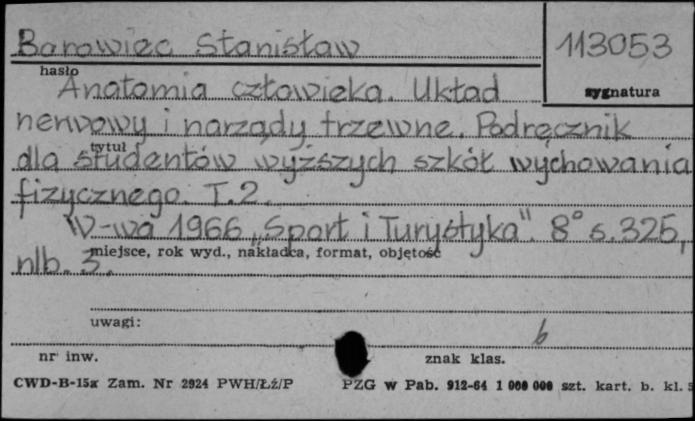 Barowiec Stanisław
113053
hasło
sygnatura
Anatomia człowieka. Układ
nerwowy i narządy trzewne. Podręcznik
tytuł
dla studentów wyższych szkół wychowania
fizycznego. T.2.
W-wa 1966 „Sport i Turystyka". 8° s. 325,
miejsce, rok wyd., nakładca, format, objętość
nlb. 3.
uwagi:
b
nr inw.
znak klas.
CWD-B-15a Zam. Nr 2924 PWH/Łź/P PZG w Pab. 912-64 1 000 000 szt. kart. b. kl. s